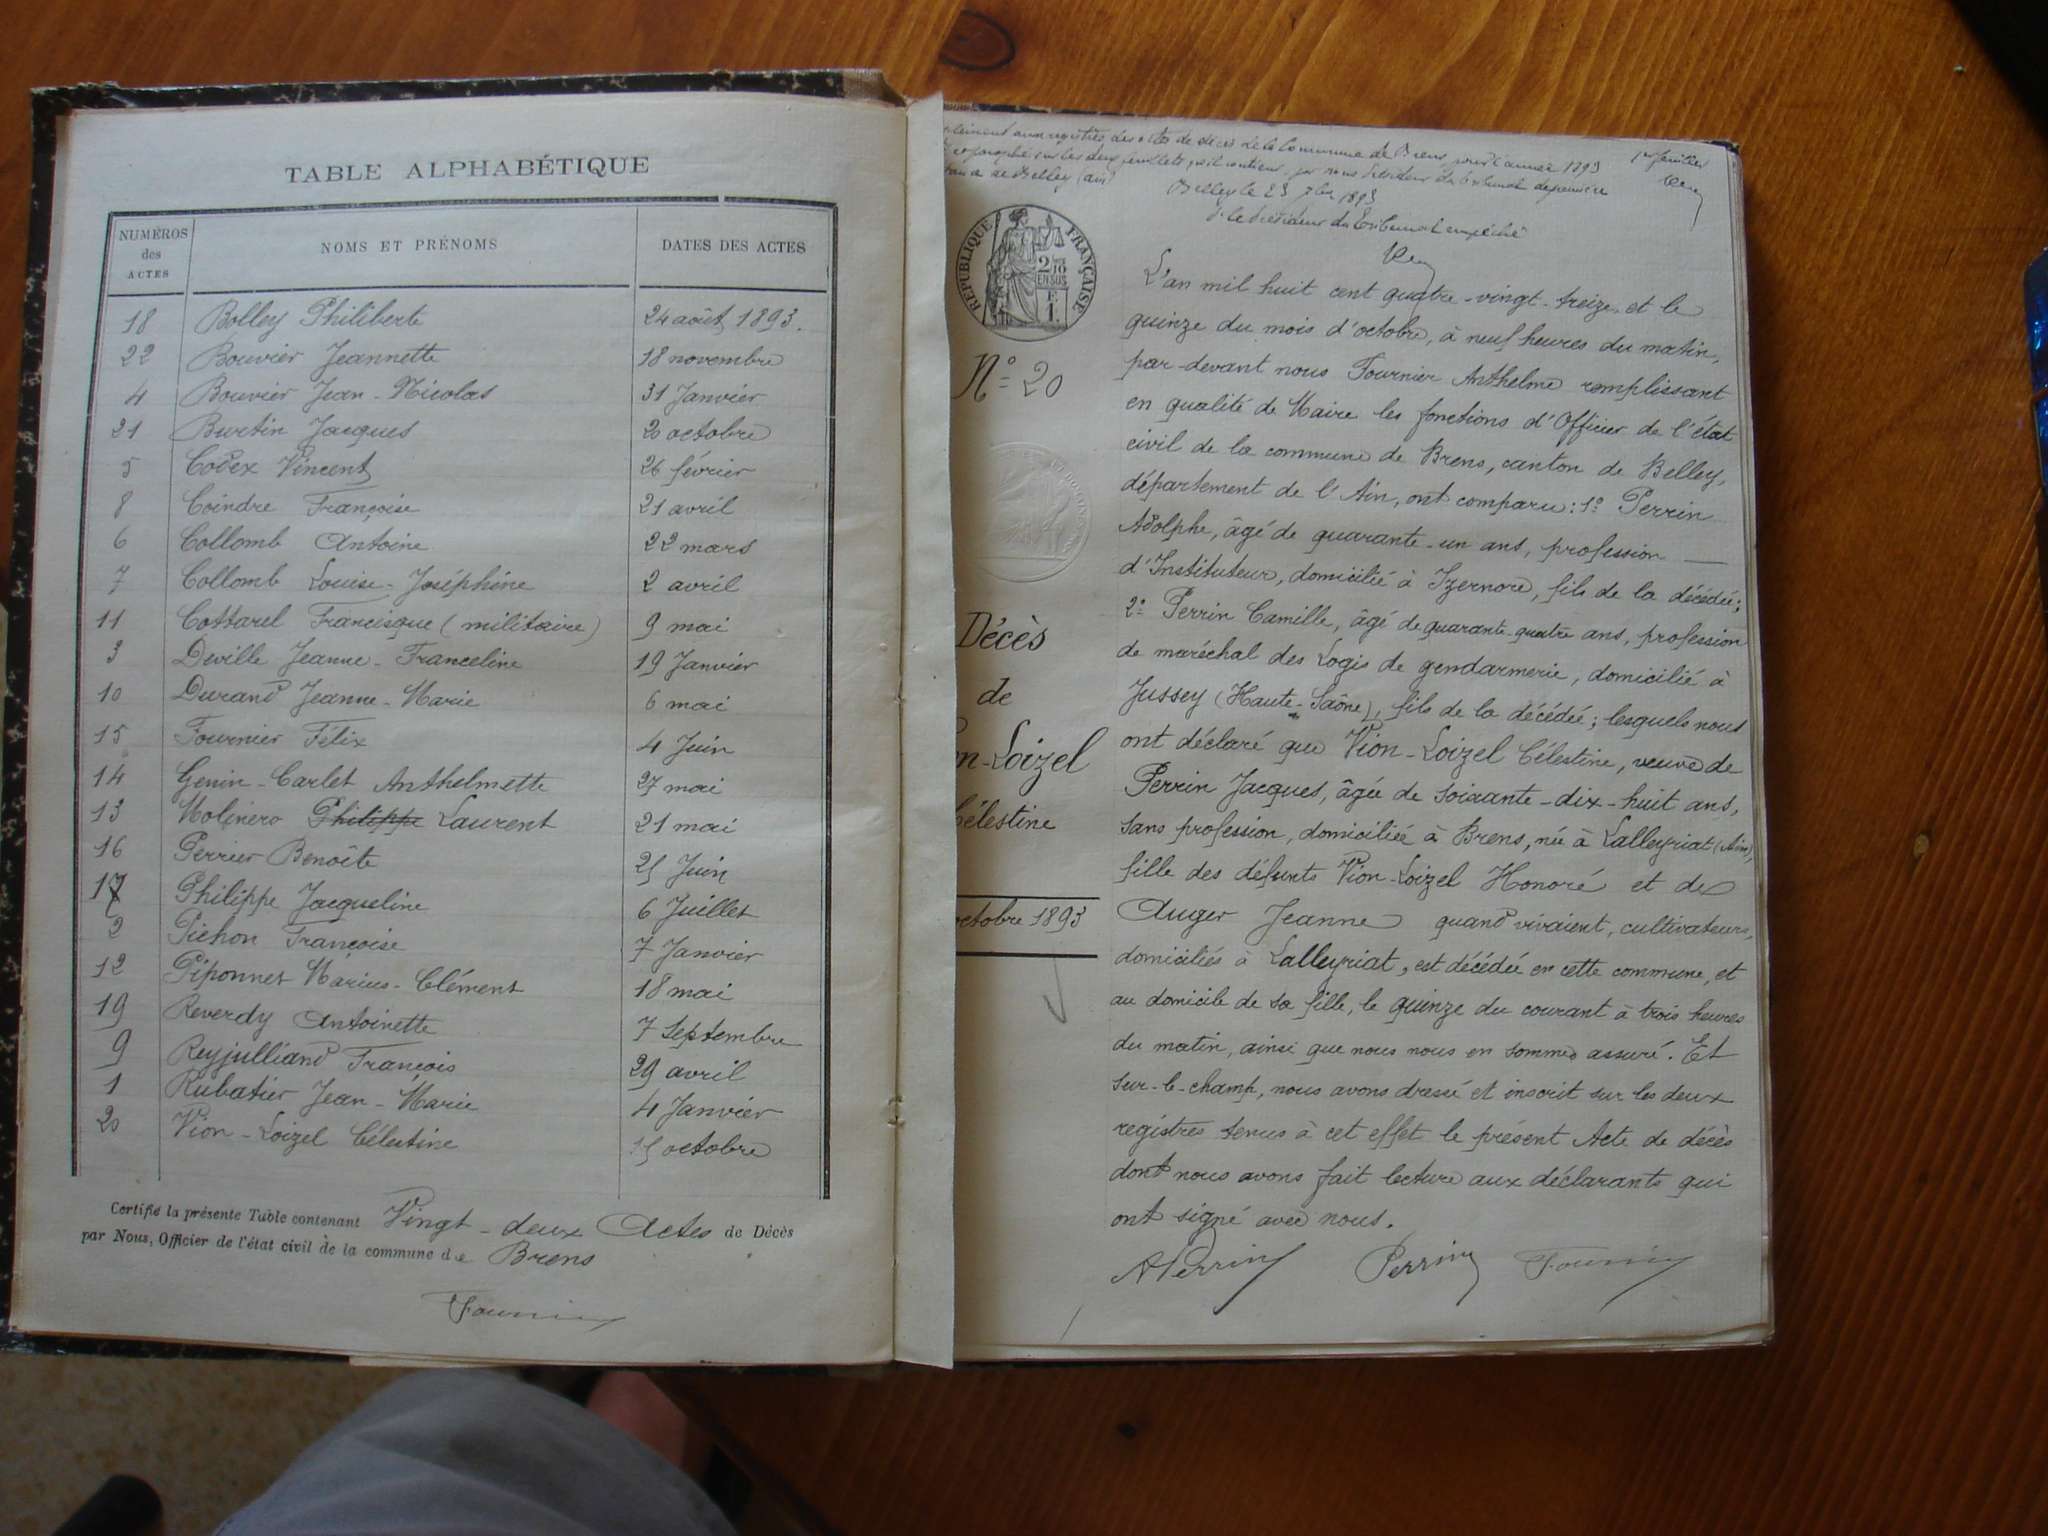 TABLE ALPHABÉTIQUE
NUMÉROS des ACTES NOMS ET PRÉNOMS DATES DES ACTES
18 Bolley Philiberte 24 août 1893.
22 Bouvier Jeannette 18 novembre
4 Bouvier Jean-Nicolas 31 Janvier
21 Burtin Jacques 20 octobre
5 Codex Vincent 26 février
8 Coindre Françoise 21 avril
6 Collomb Antoine 22 mars
7 Collomb Louise-Joséphine 2 avril
11 Cottarel Francisque (militaire) 9 mai
3 Deville Jeanne-Franceline 19 Janvier
10 Durand Jeanne-Marie 6 mai
15 Fournier Félix 4 Juin
14 Genin-Carlet Anthelmette 27 mai
13 Molinero Philippe Laurent 21 mai
16 Perrier Benoîte 25 Juin
17 Philippe Jacqueline 6 Juillet
2 Pichon Françoise 7 Janvier
12 Piponnet Marius-Clément 18 mai
19 Reverdy Antoinette 7 Septembre
9 Reyjulliand François 29 avril
1 Rubatier Jean-Marie 4 Janvier
20 Vion-Loizel Célestine 15 octobre
Certifié la présente Table contenant Vingt-deux Actes de Décès
par Nous, Officier de l'état civil de la commune de Brens
Fournier
aux registres des actes de décès de la Commune de Brens pour l'année 1893 1er feuillet
paraphé sur les deux feuillets par nous du tribunal de première
de Belley (ain)
Belley le 23 7bre 1893
le Président du Tribunal empêché
RÉPUBLIQUE FRANÇAISE
2/10 EN SUS
F. 1.
N° 20
Décès
de
n-Loizel
Célestine
octobre 1893
L'an mil huit cent quatre-vingt-treize et le
quinze du mois d'octobre, à neuf heures du matin,
par-devant nous Fournier Anthelme remplissant
en qualité de Maire les fonctions d'Officier de l'état
civil de la commune de Brens, canton de Belley,
département de l'Ain, ont comparu: 1° Perrin
Adolphe, âgé de quarante-un ans, profession
d'Instituteur, domicilié à Izernore, fils de la décédée;
2° Perrin Camille, âgé de quarante-quatre ans, profession
de maréchal des Logis de gendarmerie, domicilié à
Jussey (Haute-Saône), fils de la décédée; lesquels nous
ont déclaré que Vion-Loizel Célestine, veuve de
Perrin Jacques, âgée de soixante-dix-huit ans,
sans profession, domiciliée à Brens, née à Lalleyriat (Ain),
fille des défunts Vion-Loizel Honoré et de
Auger Jeanne quand vivaient, cultivateurs,
domiciliés à Lalleyriat, est décédée en cette commune, et
au domicile de sa fille, le quinze du courant à trois heures
du matin, ainsi que nous nous en sommes assuré. Et
sur-le-champ, nous avons dressé et inscrit sur les deux
registres tenus à cet effet le présent Acte de décès
dont nous avons fait lecture aux déclarants qui
ont signé avec nous.
A Perrin Perrin Fournier